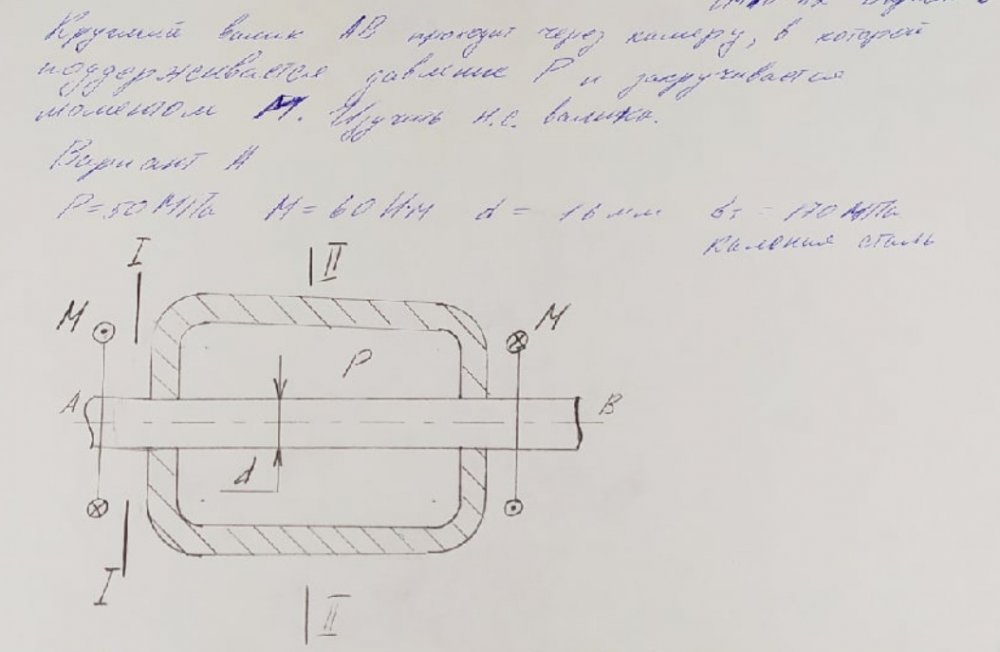 Круглый валик АВ проходит через камеру, в которой
поддерживается давление Р и закручивается
моментом М. Изучить н.с. валика.
Вариант А
Р = 50 МПа М = 60 Н·м d = 16 мм σт = 170 МПа
Каленая сталь
I II
М Р М
А В
d
I II